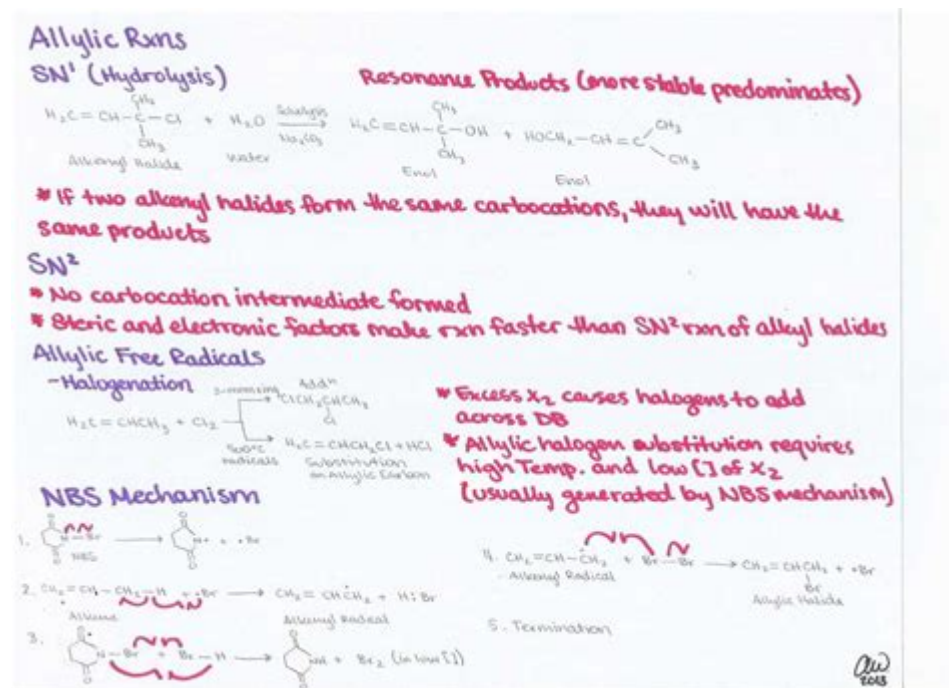 Allylic Rxns
SN¹ (Hydrolysis)
Resonance Products (more stable predominates)
CH₃ CH₃
H₂C=CH-C-Cl + H₂O Solvolysis Na₂CO₃ H₂C=CH-C-OH + HOCH₂-CH=C CH₃
CH₃ CH₃ CH₃
Alkenyl Halide Water Enol Enol
* If two alkenyl halides form the same carbocations, they will have the
same products
SN²
* No carbocation intermediate formed
* Steric and electronic factors make rxn faster than SN² rxn of alkyl halides
Allylic Free Radicals
-Halogenation
Addⁿ
ClCH₂CHCH₃
Cl
H₂C=CHCH₃ + Cl₂
500°C radicals
H₂C=CHCH₂Cl + HCl
Substitution
on Allylic Carbon
* Excess X₂ causes halogens to add
across DB
* Allylic halogen substitution requires
high Temp. and low [] of X₂
(usually generated by NBS mechanism)
NBS Mechanism
1. O N-Br O NBS O N• O + •Br
2. CH₂=CH-CH₂-H + •Br CH₂=CHĊH₂ + H:Br
Alkene Alkenyl Radical
3. O N-Br O + Br-H O NH O + Br₂ (in low [])
4. CH₂=CH-ĊH₂ + Br-Br CH₂=CHCH₂ + •Br
Br
Alkenyl Radical Allylic Halide
5. Termination
aw
2013